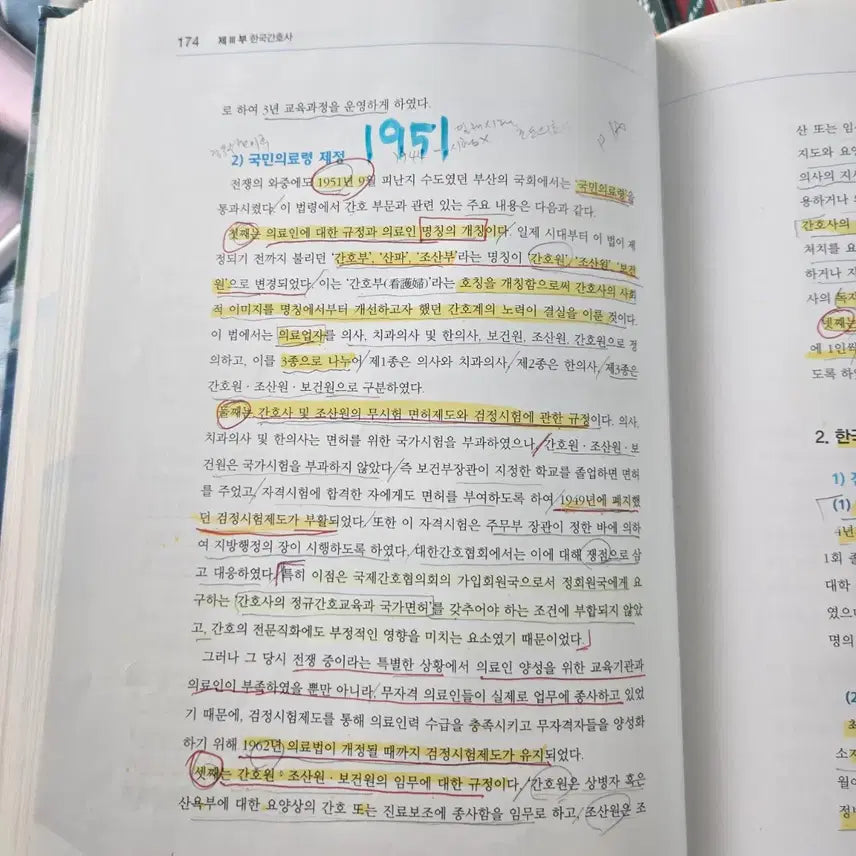 174 제Ⅲ부 한국간호사
로 하여 3년 교육과정을 운영하게 하였다.
1951
2) 국민의료령 제정
전쟁의 와중에도 1951년 9월 피난지 수도였던 부산의 국회에서는 '국민의료령'을
통과시켰다. 이 법령에서 간호 부문과 관련 있는 주요 내용은 다음과 같다.
첫째는 의료인에 대한 규정과 의료인 명칭의 개칭이다. 일제 시대부터 이 법이 제
정되기 전까지 불리던 '간호부', '산파', '조산부'라는 명칭이 '간호원', '조산원', '보건
원'으로 변경되었다. 이는 '간호부(看護婦)'라는 호칭을 개칭함으로써 간호사의 사회
적 이미지를 명칭에서부터 개선하고자 했던 간호계의 노력이 결실을 이룬 것이다.
이 법에서는 의료업자를 의사, 치과의사 및 한의사, 보건원, 조산원, 간호원으로 정
의하고, 이를 3종으로 나누어 제1종은 의사와 치과의사, 제2종은 한의사, 제3종은
간호원·조산원·보건원으로 구분하였다.
둘째는 간호사 및 조산원의 무시험 면허제도와 검정시험에 관한 규정이다. 의사,
치과의사 및 한의사는 면허를 위한 국가시험을 부과하였으나, 간호원·조산원·보
건원은 국가시험을 부과하지 않았다. 즉 보건부장관이 지정한 학교를 졸업하면 면허
를 주었고, 자격시험에 합격한 자에게도 면허를 부여하도록 하여 1949년에 폐지했
던 검정시험제도가 부활되었다. 또한 이 자격시험은 주무부 장관이 정한 바에 의하
여 지방행정의 장이 시행하도록 하였다. 대한간호협회에서는 이에 대해 쟁점으로 삼
고 대응하였다. 특히 이점은 국제간호협의회의 가입회원국으로서 정회원국에게 요
구하는 '간호사의 정규간호교육과 국가면허'를 갖추어야 하는 조건에 부합되지 않았
고, 간호의 전문직화에도 부정적인 영향을 미치는 요소였기 때문이었다.
그러나 그 당시 전쟁 중이라는 특별한 상황에서 의료인 양성을 위한 교육기관과
의료인이 부족하였을 뿐만 아니라, 무자격 의료인들이 실제로 업무에 종사하고 있었
기 때문에, 검정시험제도를 통해 의료인력 수급을 충족시키고 무자격자들을 양성화
하기 위해 1962년 의료법이 개정될 때까지 검정시험제도가 유지되었다.
셋째는 간호원·조산원·보건원의 임무에 대한 규정이다. '간호원은 상병자 혹은
산욕부에 대한 요양상의 간호 또는 진료보조에 종사함을 임무로 하고, 조산원은 조
산 또는 임
지도와 요
의사의 지시
용하거나
간호사의
처치를 요
하거나
사의 독자
넷째는
에 1인씩
도록 하
2. 한국
1)
(1)
4년
1회 졸
대학
였으
명의
(2)
소지
월이